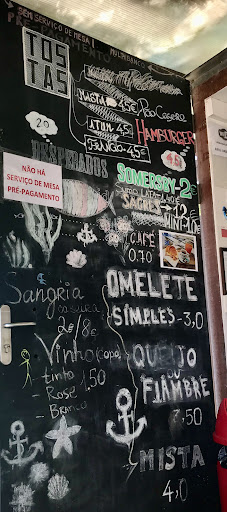 SEM SERVIÇO DE MESA
PRÉ-PAGAMENTO
TOS
TAS
MISTA 4,5€
ATUM - 4,5€
FRANGO - 4,5€
Pão Caseiro
HAMBURGER
20
4,5€
DESPERADOS
NÃO HÁ
SERVIÇO DE MESA
PRÉ-PAGAMENTO
SOMERSBY-2€
SAGRES
MINI-1€
CAFÉ
0.70
Sangria
da casa
2€/8€
Vinho (copo)
- tinto
- Rose 1,50
- Branco
OMELETE
SÍMPLES - 3,0
QUEIJO
OU
FIAMBRE
3,50
MISTA
4,0